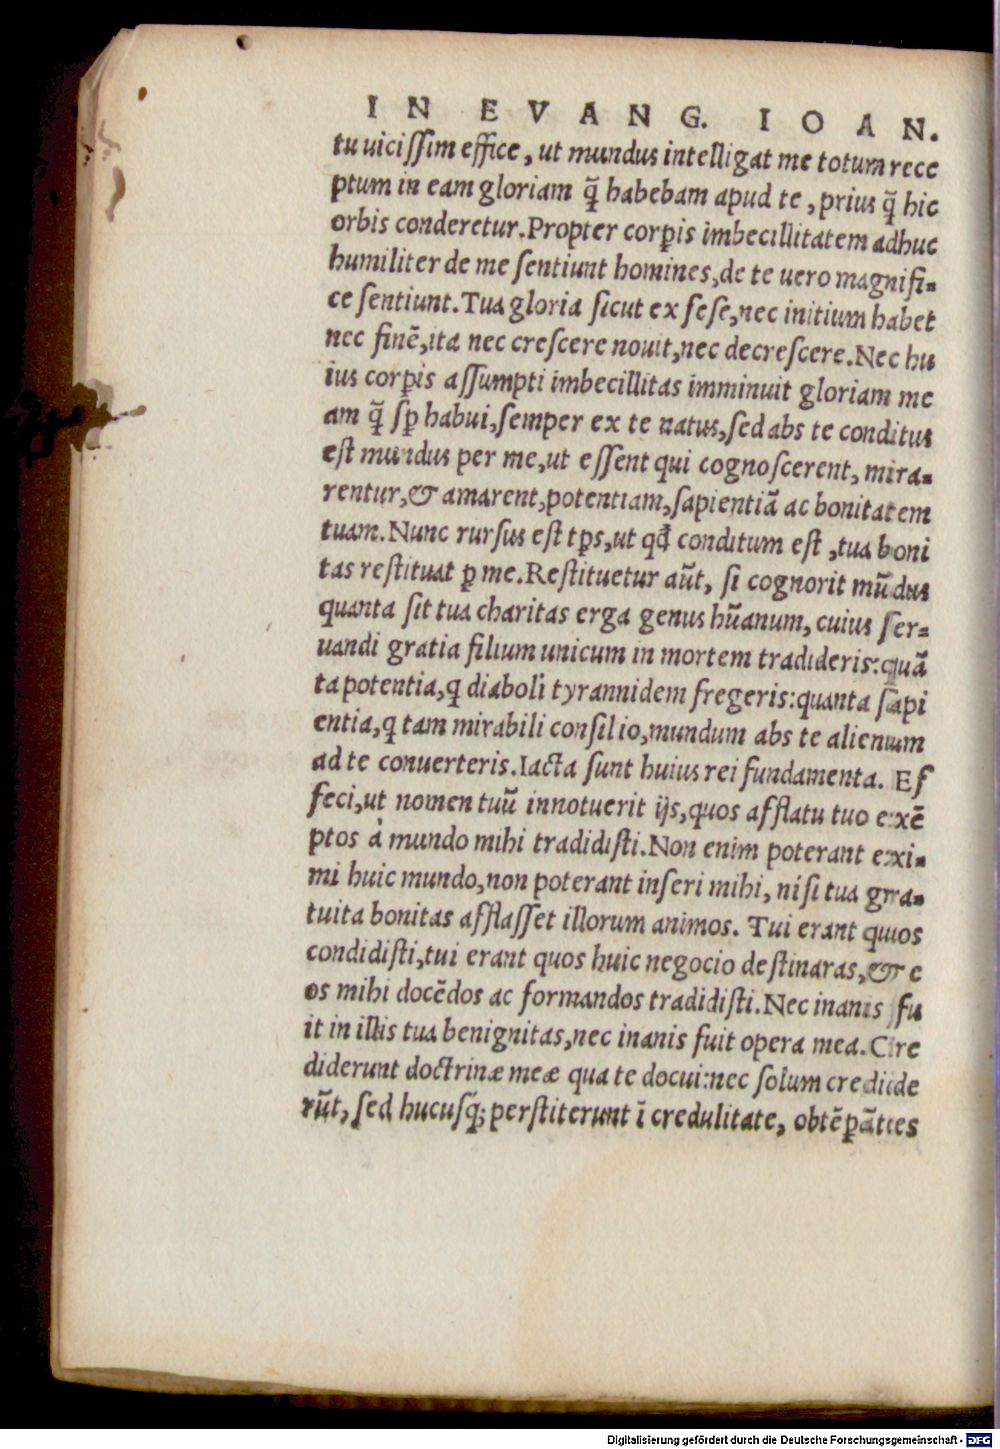 IN EVANG. IOAN.
tu uiciſſim effice, ut mundus intelligat me totum rece
ptum in eam gloriam q̃ habebam apud te, prius q̃ hic
orbis conderetur. Propter corꝑis imbecillitatem adhuc
humiliter de me ſentiunt homines, de te uero magnifi-
ce ſentiunt. Tua gloria ſicut ex ſeſe, nec initium habet
nec finē, ita nec creſcere nouit, nec decreſcere. Nec hu
ius corꝑis aſſumpti imbecillitas imminuit gloriam me
am q̃ ſꝑ habui, ſemper ex te natus, ſed abs te conditus
eſt mundus per me, ut eſſent qui cognoſcerent, mira-
rentur, & amarent, potentiam, ſapientiā ac bonitatem
tuam. Nunc rurſus eſt tꝑs, ut qđ conditum eſt, tua boni
tas reſtituat ꝑ me. Reſtituetur aūt, ſi cognorit mūdus
quanta ſit tua charitas erga genus hūanum, cuius ſer-
uandi gratia filium unicum in mortem tradideris: quā
ta potentia, q diaboli tyrannidem fregeris: quanta ſapi
entia, q tam mirabili conſilio, mundum abs te alienum
ad te conuerteris. Iacta ſunt huius rei fundamenta. Ef
feci, ut nomen tuū innotuerit ijs, quos afflatu tuo exē
ptos à mundo mihi tradidiſti. Non enim poterant exi-
mi huic mundo, non poterant inſeri mihi, niſi tua gra-
tuita bonitas afflaſſet illorum animos. Tui erant quos
condidiſti, tui erant quos huic negocio deſtinaras, & e
os mihi docēdos ac formandos tradidiſti. Nec inanis fu
it in illis tua benignitas, nec inanis fuit opera mea. Cre
diderunt doctrinæ meæ qua te docui: nec ſolum credide
rūt, ſed hucuſq; perſtiterunt ī credulitate, obtēꝑātes
Digitalisierung gefördert durch die Deutsche Forschungsgemeinschaft - DFG